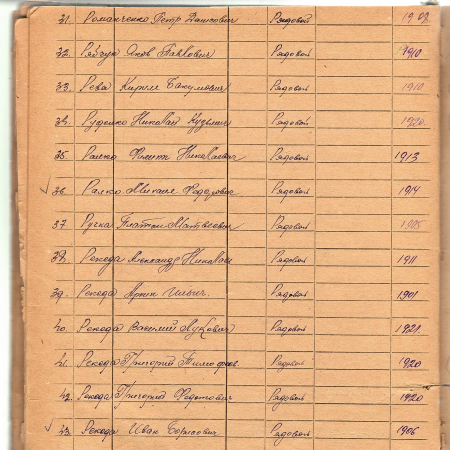 31. Романченко Петр Данилович Рядовой
32. Рябчук Яков Павлович Рядовой 1910
33. Рева Кирилл Рядовой 1910
34. Руденко Николай Кузьмич Рядовой 1920
35. Ралко Филипп Николаевич Рядовой 1913
36 Ралко Михаил Федорович Рядовой 1914
37 Ручка Матвеевич Рядовой 1905
38. Рекеда Александр Николаев Рядовой 1911
39. Рекеда Ильич. Рядовой 1901
40. Рекеда Василий Лукович Рядовой 1921
41. Рекеда Григорий Тимофеев. Рядовой 1920
42. Рекеда Григорий Федотович Рядовой 1920
43. Рекеда Иван Борисович Рядовой 1906